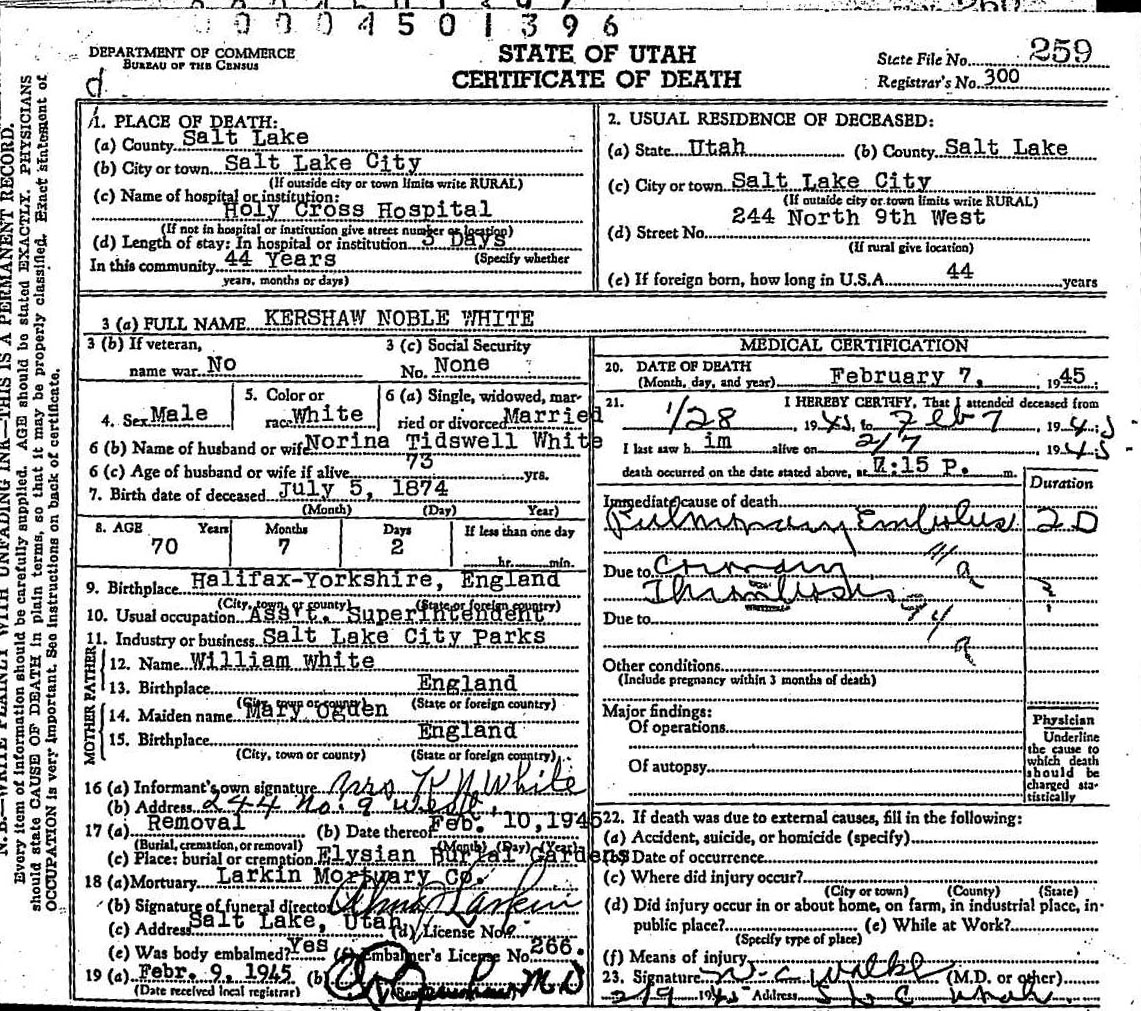 00004501396
DEPARTMENT OF COMMERCE
BUREAU OF THE CENSUS
STATE OF UTAH
CERTIFICATE OF DEATH
State File No. 259
Registrar's No. 300
d
N. B.—WRITE PLAINLY WITH UNFADING INK—THIS IS A PERMANENT RECORD.
Every item of information should be carefully supplied. AGE should be stated EXACTLY. PHYSICIANS
should state CAUSE OF DEATH in plain terms, so that it may be properly classified. Exact statement of
OCCUPATION is very important. See instructions on back of certificate.
1. PLACE OF DEATH:
(a) County Salt Lake
(b) City or town Salt Lake City
(If outside city or town limits write RURAL)
(c) Name of hospital or institution:
Holy Cross Hospital
(If not in hospital or institution give street number or location)
(d) Length of stay: In hospital or institution 3 Days
(Specify whether
In this community 44 Years
years, months or days)
2. USUAL RESIDENCE OF DECEASED:
(a) State Utah (b) County Salt Lake
(c) City or town Salt Lake City
(If outside city or town limits write RURAL)
244 North 9th West
(d) Street No.
(If rural give location)
(e) If foreign born, how long in U.S.A 44 years
3 (a) FULL NAME KERSHAW NOBLE WHITE
3 (b) If veteran,
name war No
3 (c) Social Security
No. None
4. Sex Male
5. Color or
race White
6 (a) Single, widowed, mar-
ried or divorced Married
6 (b) Name of husband or wife Norina Tidswell White
6 (c) Age of husband or wife if alive 73 yrs.
7. Birth date of deceased July 5, 1874
(Month) (Day) Year)
8. AGE Years Months Days If less than one day
70 7 2 hr. min.
9. Birthplace Halifax-Yorkshire, England
(City, town, or county) (State or foreign country)
10. Usual occupation Ass't. Superintendent
11. Industry or business Salt Lake City Parks
FATHER
12. Name William White
13. Birthplace England
(City, town or county) (State or foreign country)
MOTHER
14. Maiden name Mary Ogden
15. Birthplace England
(City, town or county) (State or foreign country)
16 (a) Informant's own signature Mrs K N White
(b) Address 244 No. 9 West,
17 (a) Removal (b) Date thereof Feb. 10, 1945
(Burial, cremation, or removal) (Month) (Day) (Year)
(c) Place: burial or cremation Elysian Burial Gardens
18 (a) Mortuary Larkin Mortuary Co.
(b) Signature of funeral director Larkin
(c) Address Salt Lake, Utah (d) License No.
(e) Was body embalmed? Yes (f) Embalmer's License No. 266.
19 (a) Febr. 9, 1945 (b) M D
(Date received local registrar)
MEDICAL CERTIFICATION
20. DATE OF DEATH
(Month, day, and year) February 7, 1945
21. I HEREBY CERTIFY, That I attended deceased from
1/28, 1945, to Feb 7, 1945
I last saw h im alive on 2/7 1945
death occurred on the date stated above, at :15 P. m.
Duration
Immediate cause of death
Pulmonary Embolus 2 D
Due to Coronary
Thrombosis
94
a
Due to
Other conditions
(Include pregnancy within 3 months of death)
Major findings:
Of operations
Of autopsy
Physician
Underline
the cause to
which death
should be
charged sta-
tistically
22. If death was due to external causes, fill in the following:
(a) Accident, suicide, or homicide (specify)
(b) Date of occurrence
(c) Where did injury occur?
(City or town) (County) (State)
(d) Did injury occur in or about home, on farm, in industrial place, in-
public place? (e) While at Work?
(Specify type of place)
(f) Means of injury
23. Signature W. C. (M.D. or other)
2/9 1945 Address S L C Utah